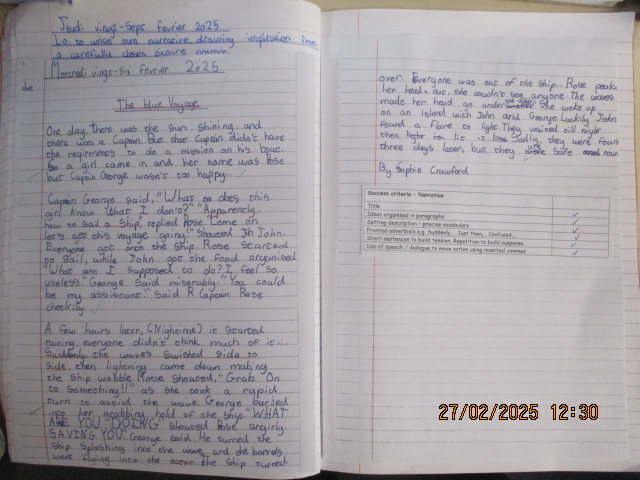 Jeudi vingt-sept février 2025
L.o. to write own narrative, drawing inspiration from
a carefully chosen
Mercredi vingt-six février 2025
The blue Voyage
One day, there was the sun shining, and
there was a Captain. But that Captain didn't have
the to do a mission on his boat.
So a girl came in and her name was Rose
but Captain George wasn't too happy...
Captain George said, "What does this
girl know that I don't?" "Apparently,
how to sail a ship, replied Rose. Come on
let's get this voyage going!" Shouted John.
Everyone got onto the ship. Rose started
to sail, while John got the food organised
"What am I supposed to do? I feel so
useless" George said miserably. "You could
be my assistant." said Captain Rose
cheekily.
A few hours later, (Nightime) it started
raining, everyone didn't think much of it...
Suddenly, the waves swished side to
side, then lightning came down making
the ship wobble. Rose shouted, "Grab On
to something!!" as she took a rapid
turn to avoid the wave. George
into her grabbing hold of the ship. "WHAT
ARE YOU DOING" shouted Rose angirly.
SAVING YOU" George said. He turned the
ship splashing into the wave, and the barrels
were flying into the ocean. The ship turned
over. Everyone was out of the ship... Rose
her head out. She couldn't see anyone. The waves
made her head go under She woke up
on an island with John and George. Luckily John
found a flare to light. They waited till night
then lit it. Sadly, they were found
three days later, but they are safe now.
By Sophie Crawford
Success criteria - Narrative
Title
Ideas organised in paragraphs ✓
Setting description - precise vocabulary ✓
Fronted adverbials e.g. Suddenly... Just then... Confused... ✓
Short sentences to build tension. Repetition to build suspense. ✓
Use of speech / dialogue to move action using inverted commas ✓
27/02/2025 12:30